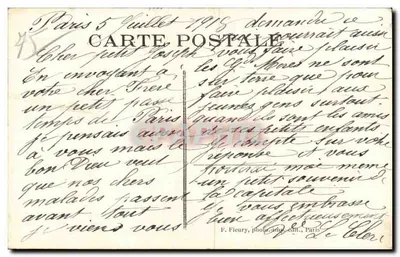 75
Paris 5 Juillet 1915
CARTE POSTALE
Cher petit Joseph
En envoyant à
votre cher Frère
un petit
temps de Paris
je pensais aussi
à vous mais le
bon Dieu veut
que nos chers
malades passent
avant tout
je viens vous
demander
pourrait aussi
vous faire plaisir
les Gd Mères ne sont
sur terre que pour
faire plaisir aux
jeunes gens surtout
quand ils sont les amis
de nos petits enfants
Je compte sur votre
réponse et vous
moi même
un petit souvenir de
la capitale
Je vous embrasse
bien affectueusement
Le Cler
F. Fleury, phot. édit., Paris